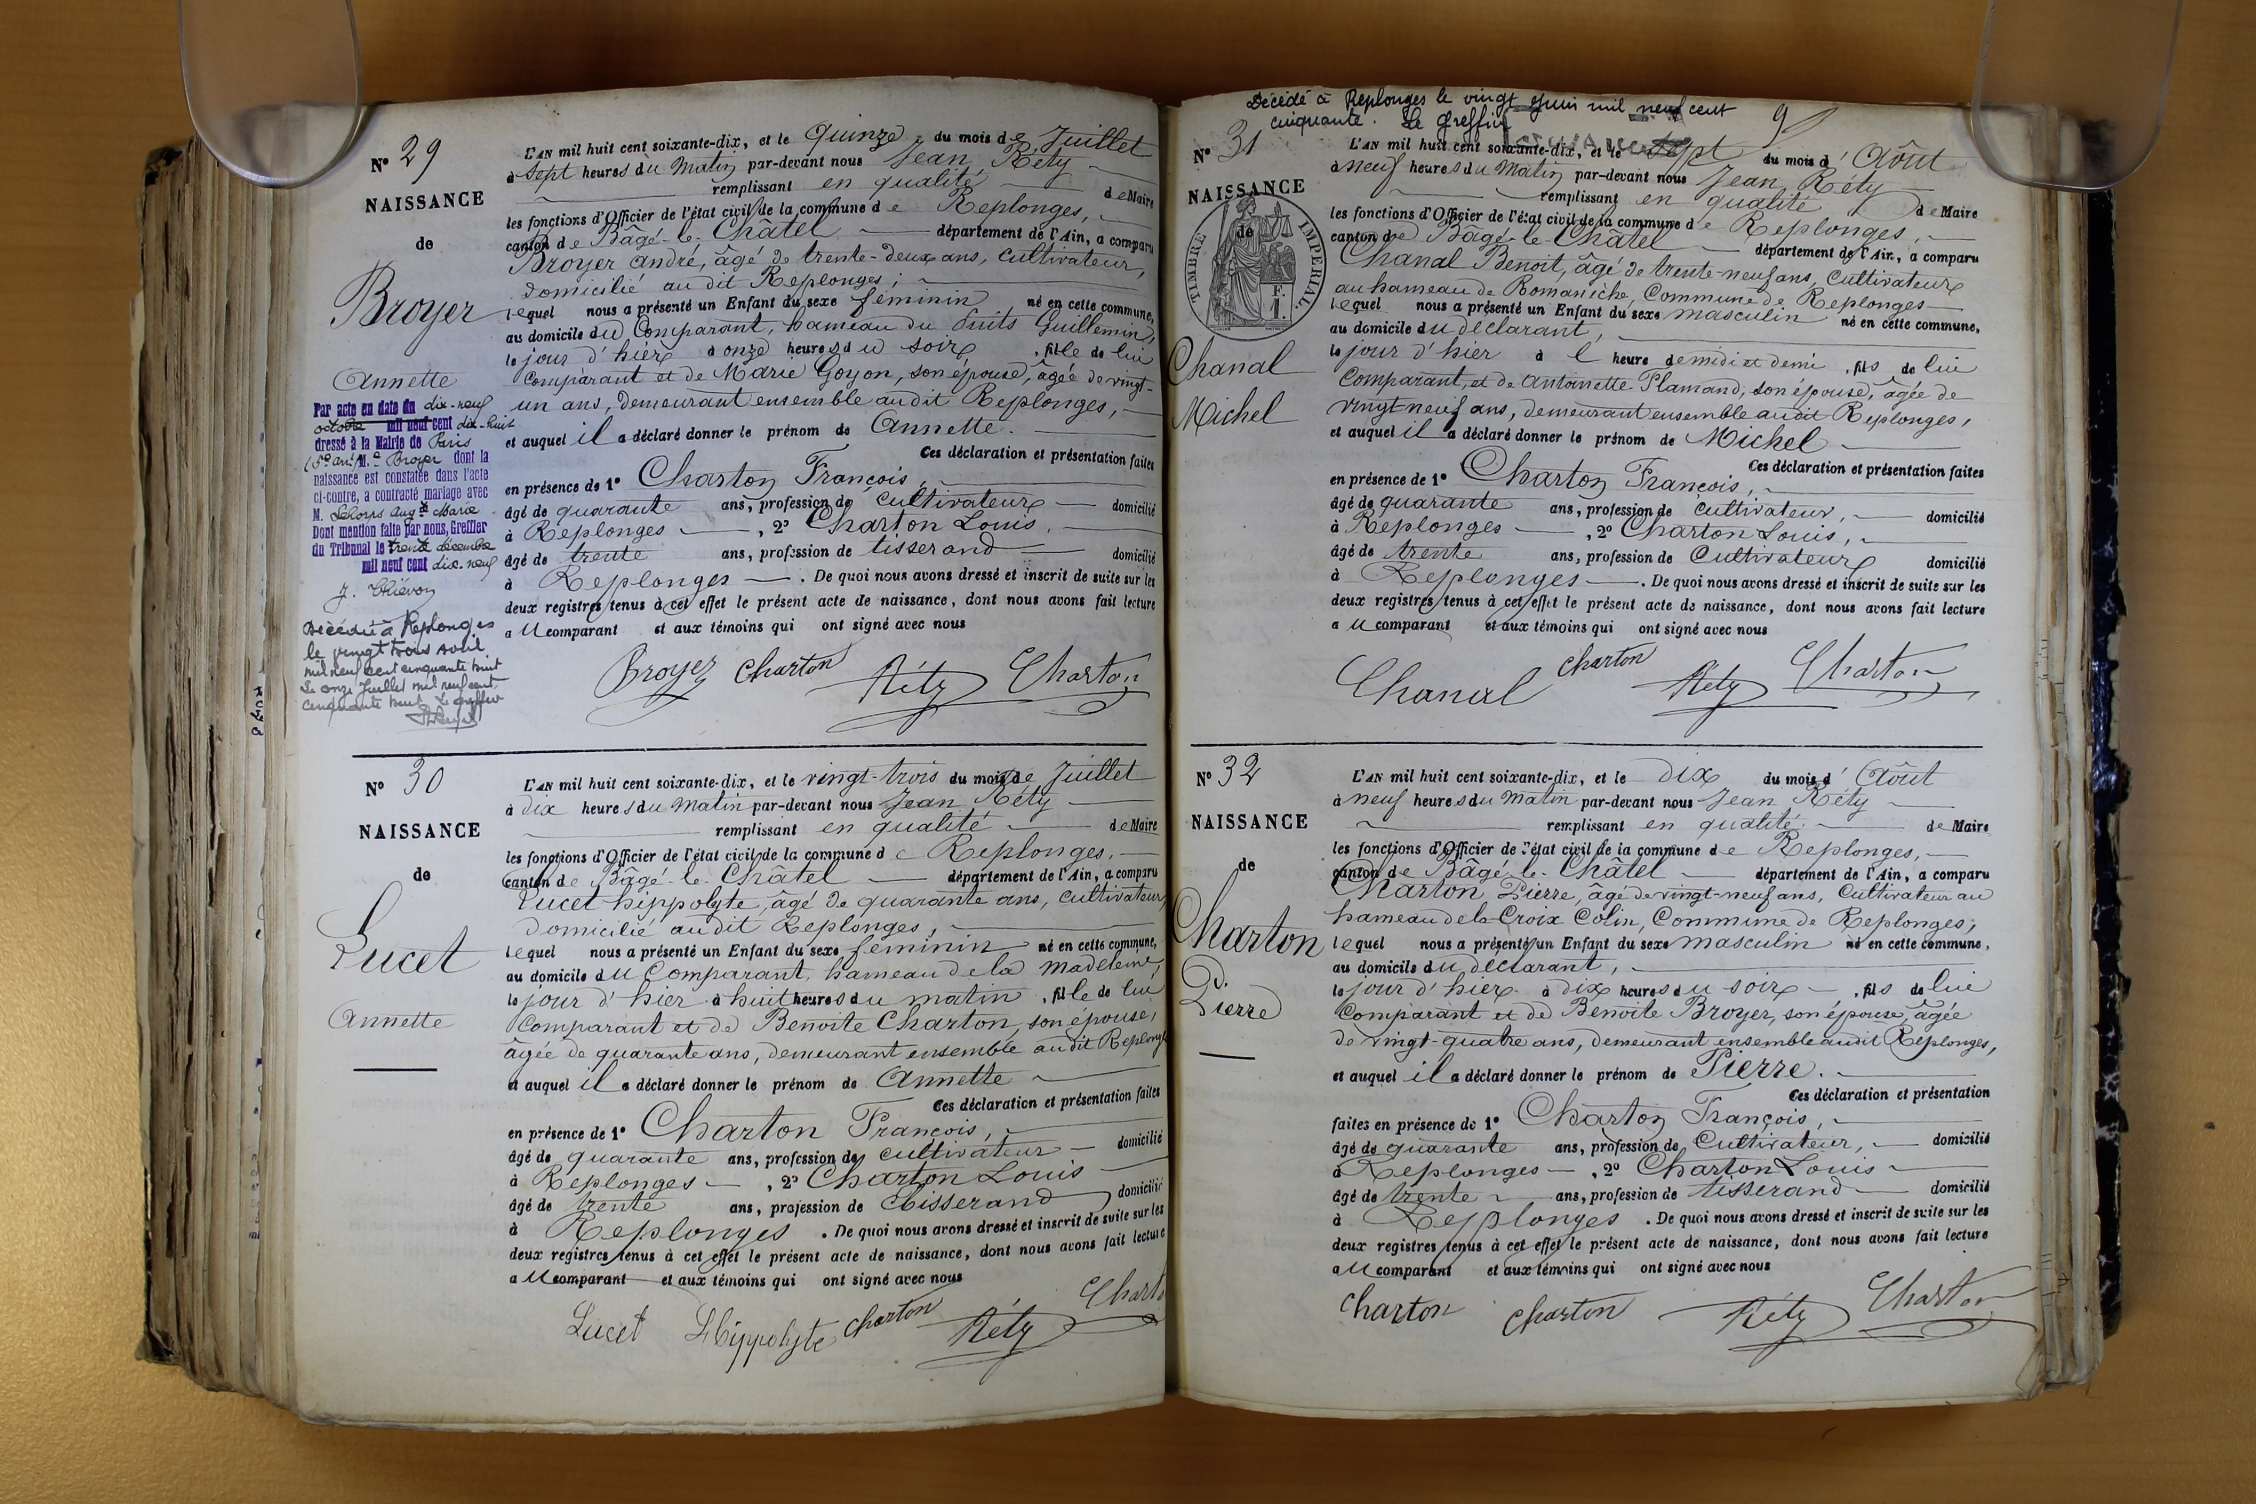 N° 29
NAISSANCE
de
Broyer
Annette
Par acte en date du dix-neuf
octobre mil neuf cent dix-huit
dressé à la Mairie de Paris
(5e arrt) M.e Broyer dont la
naissance est constatée dans l'acte
ci-contre, a contracté mariage avec
M. Augte Marie
Dont mention faite par nous, Greffier
du Tribunal le trente décembre
mil neuf cent dix-neuf
J. Thiévon
Décédée à Replonges
le vingt trois avril
mil neuf cent cinquante huit
Le onze Juillet mil neuf cent
cinquante huit Le greffier
L'AN mil huit cent soixante-dix, et le Quinze du mois de Juillet
à Sept heures du Matin par-devant nous Jean Réty
remplissant en qualité de Maire
les fonctions d'Officier de l'état civil de la commune de Replonges,
canton de Bâgé-le-Châtel département de l'Ain, a comparu
Broyer André, âgé de trente-deux ans, cultivateur,
domicilié au dit Replonges;
lequel nous a présenté un Enfant du sexe féminin né en cette commune,
au domicile du Comparant, hameau du Puits Guillemin,
le jour d'hier à onze heures du soir, fille de lui
Comparant et de Marie Goyon, son épouse, âgée de vingt-
un ans, demeurant ensemble au dit Replonges,
et auquel il a déclaré donner le prénom de Annette.
Ces déclaration et présentation faites
en présence de 1° Charton François,
âgé de quarante ans, profession de cultivateur domicilié
à Replonges, 2° Charton Louis,
âgé de trente ans, profession de tisserand domicilié
à Replonges. De quoi nous avons dressé et inscrit de suite sur les
deux registres tenus à cet effet le présent acte de naissance, dont nous avons fait lecture
au comparant et aux témoins qui ont signé avec nous
Broyer Charton Réty Charton
N° 30
NAISSANCE
de
Lucet
Annette
L'AN mil huit cent soixante-dix, et le vingt-trois du mois de Juillet
à dix heures du Matin par-devant nous Jean Réty
remplissant en qualité de Maire
les fonctions d'Officier de l'état civil de la commune de Replonges,
canton de Bâgé-le-Châtel département de l'Ain, a comparu
Lucet hippolyte, âgé de quarante ans, cultivateur,
domicilié au dit Replonges,
lequel nous a présenté un Enfant du sexe féminin né en cette commune,
au domicile du Comparant, hameau de la Madeleine,
le jour d'hier à huit heures du matin, fille de lui
Comparant et de Benoite Charton, son épouse,
âgée de quarante ans, demeurant ensemble au dit Replonges
et auquel il a déclaré donner le prénom de Annette
Ces déclaration et présentation faites
en présence de 1° Charton François,
âgé de quarante ans, profession de cultivateur domicilié
à Replonges, 2° Charton Louis
âgé de trente ans, profession de tisserand domicilié
à Replonges. De quoi nous avons dressé et inscrit de suite sur les
deux registres tenus à cet effet le présent acte de naissance, dont nous avons fait lecture
au comparant et aux témoins qui ont signé avec nous
Lucet Hippolyte Charton Réty Charto
Décédé à Replonges le vingt juin mil neuf cent
cinquante. Le Greffier
9
N° 31
NAISSANCE
de
TIMBRE IMPERIAL
F.
1.
Chanal
Michel
L'AN mil huit cent soixante-dix, et le Sept du mois d'Août
à neuf heures du Matin par-devant nous Jean Réty
remplissant en qualité de Maire
les fonctions d'Officier de l'état civil de la commune de Replonges,
canton de Bâgé-le-Châtel département de l'Ain, a comparu
Chanal Benoit, âgé de trente-neuf ans, Cultivateur
au hameau de Romanèche, Commune de Replonges
lequel nous a présenté un Enfant du sexe masculin né en cette commune,
au domicile du déclarant,
le jour d'hier à l heure de midi et demi, fils de lui
Comparant, et de Antoinette Plamand, son épouse, âgée de
vingt neuf ans, demeurant ensemble au dit Replonges,
et auquel il a déclaré donner le prénom de Michel
Ces déclaration et présentation faites
en présence de 1° Charton François,
âgé de quarante ans, profession de cultivateur, domicilié
à Replonges, 2° Charton Louis,
âgé de trente ans, profession de Cultivateur domicilié
à Replonges. De quoi nous avons dressé et inscrit de suite sur les
deux registres tenus à cet effet le présent acte de naissance, dont nous avons fait lecture
au comparant et aux témoins qui ont signé avec nous
Chanal Charton Réty Charton
N° 32
NAISSANCE
de
Charton
Pierre
L'AN mil huit cent soixante-dix, et le dix du mois d'Août
à neuf heures du Matin par-devant nous Jean Réty
remplissant en qualité de Maire
les fonctions d'Officier de l'état civil de la commune de Replonges,
canton de Bâgé-le-Châtel département de l'Ain, a comparu
Charton Pierre, âgé de vingt-neuf ans, Cultivateur au
hameau de la Croix Colin, Commune de Replonges;
lequel nous a présenté un Enfant du sexe masculin né en cette commune,
au domicile du déclarant,
le jour d'hier à dix heures du soir, fils de lui
Comparant et de Benoite Broyer, son épouse, âgée
de vingt-quatre ans, demeurant ensemble audit Replonges,
et auquel il a déclaré donner le prénom de Pierre.
Ces déclaration et présentation
faites en présence de 1° Charton François,
âgé de quarante ans, profession de Cultivateur, domicilié
à Replonges, 2° Charton Louis
âgé de trente ans, profession de tisserand domicilié
à Replonges. De quoi nous avons dressé et inscrit de suite sur les
deux registres tenus à cet effet le présent acte de naissance, dont nous avons fait lecture
au comparant et aux témoins qui ont signé avec nous
Charton Charton Réty Charton